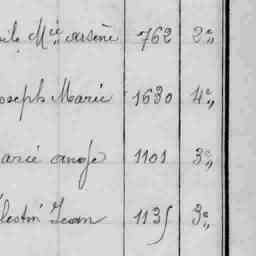 ile Mie arsène 762 2e
oseph Marie 1630 4e
arie ange 1101 3e
lestin Jean 1135 3e